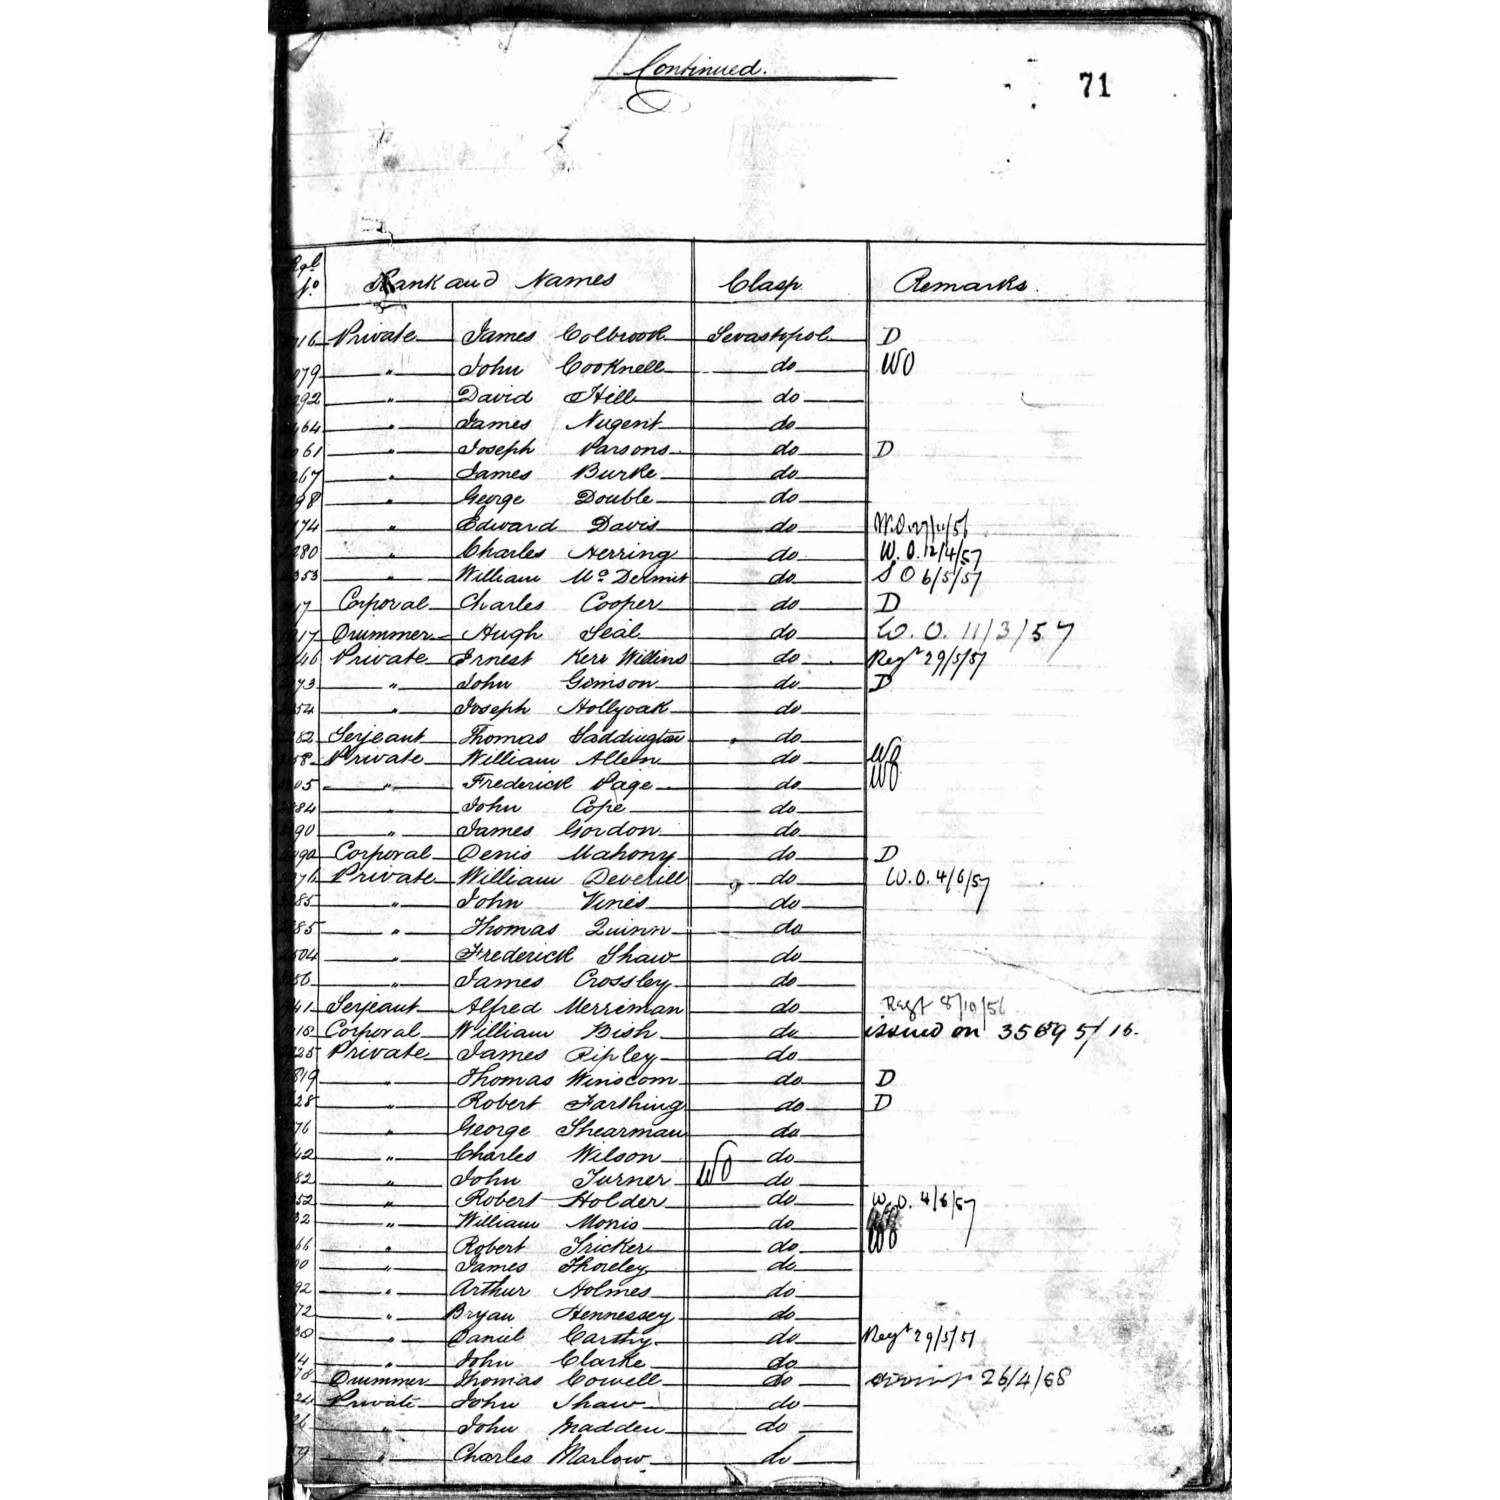 Continued.
71
Rank and Names Clasp. Remarks.
Private James Colbrook Sevastopol D
" John Cooknell do WO
" David Hill do
" James Nugent do
" Joseph Parsons do D
" James Burke do
" George Double do
" Edward Davis do W.O. 27/11/56
" Charles Herring do W.O. 12/4/57
" William McDermit do S O 6/5/57
Corporal Charles Cooper do D
Drummer Hugh Seal do W.O. 11/3/57
Private Ernest Kerr Wilkins do Regt 29/5/57
" John Gimson do D
" Joseph Hollyoak do
Serjeant Thomas Saddington do
Private William Allen do WO
" Frederick Page do WO
" John Cope do
" James Gordon do
Corporal Denis Mahony do D
Private William Deverill do W.O. 4/6/57
" John Vines do
" Thomas Quinn do
" Frederick Shaw do
" James Crossley do
Serjeant Alfred Merriman do Regt 8/10/56
Corporal William Bish do issued on 3569 5/16.
Private James Ripley do
" Thomas Winscom do D
" Robert Farthing do D
" George Shearman do
" Charles Wilson do
" John Turner WO do
" Robert Holder do W.O. 4/6/57
" William Monis do
" Robert Tricker do WO
" James Thorley do
" Arthur Holmes do
" Bryan Hennessey do
" Daniel Carthy do Regt 29/5/57
" John Clarke do
Drummer Thomas Cowell do 26/4/68
Private John Shaw do
" John Madden do
" Charles Marlow do